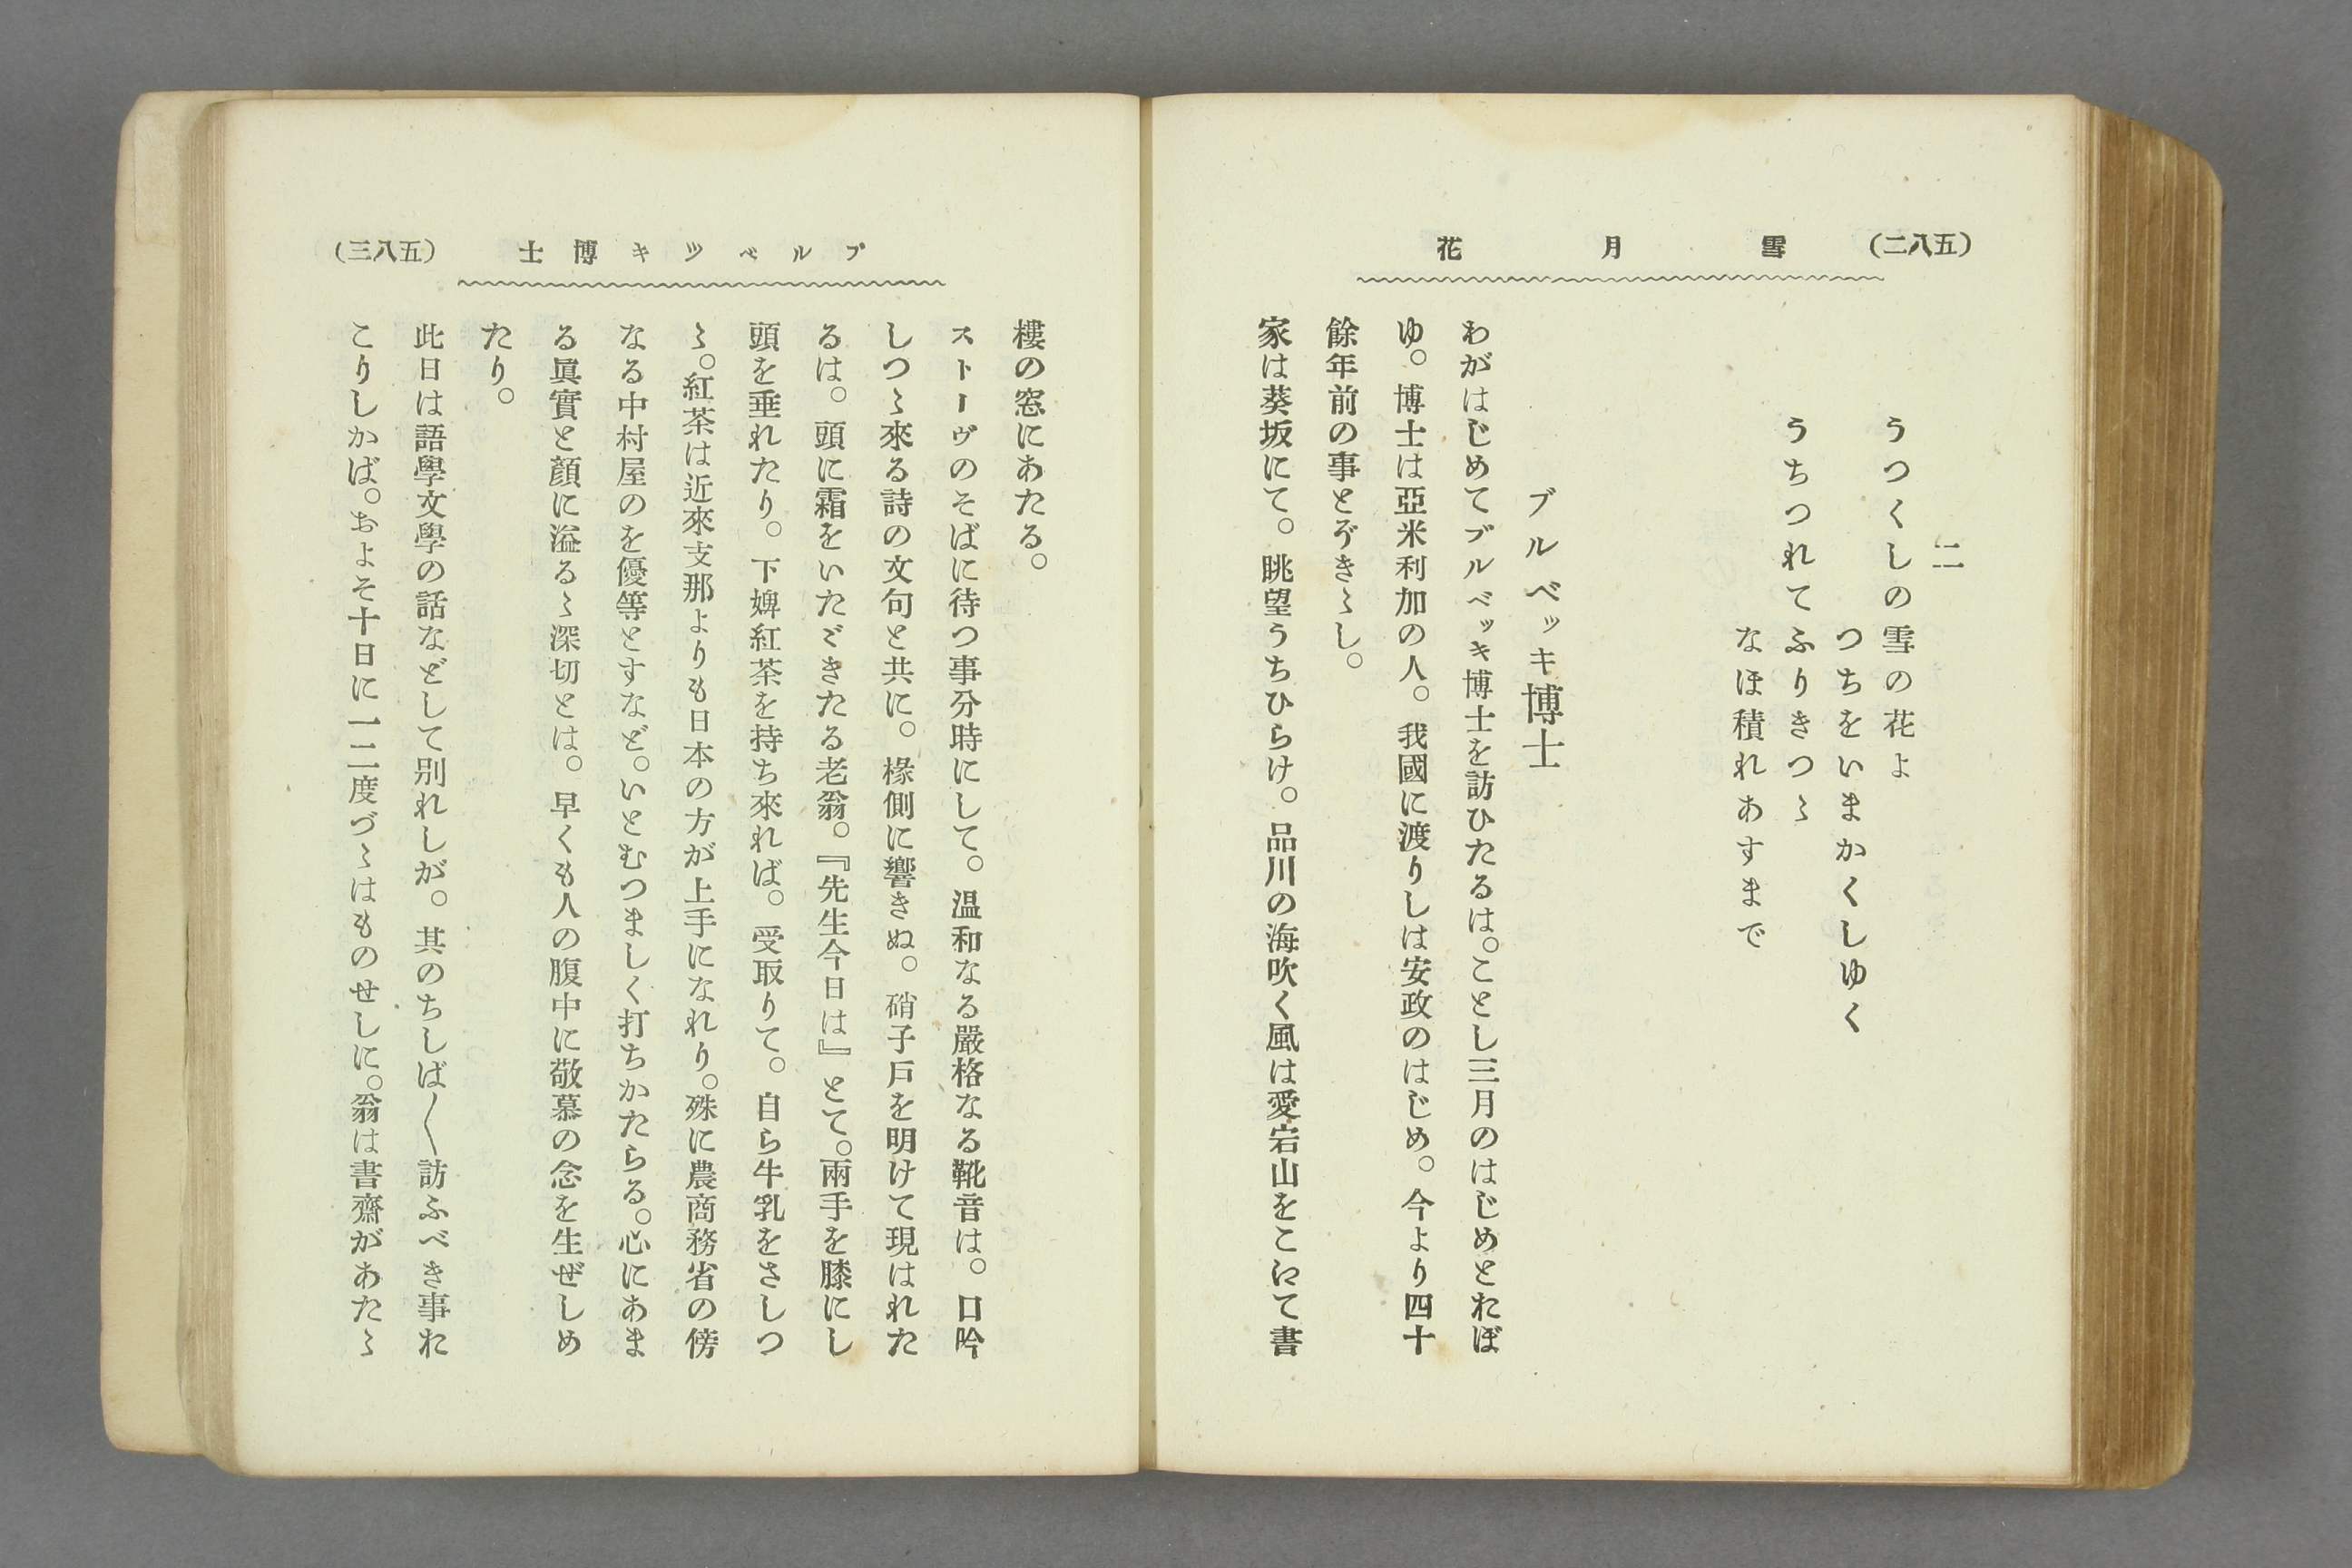 (五八二)
雪月花
二
うつくしの雪の花よ
つちをいまかくしゆく
うちつれてふりきつゝ
なほ積れあすまで
ブルベッキ博士
わがはじめてブルベッキ博士を訪ひたるは。ことし三月のはじめとおぼ
ゆ。博士は亞米利加の人。我國に渡りしは安政のはじめ。今より四十
餘年前の事とぞきゝし。
家は葵坂にて。眺望うちひらけ。品川の海吹く風は愛宕山をこえて書
(五八三)
ブルベツキ博士
樓の窓にあたる。
ストーヴのそばに待つ事分時にして。温和なる嚴格なる靴音は。口吟
しつゝ來る詩の文句と共に。椽側に響きぬ。硝子戸を明けて現はれた
るは。頭に霜をいたゞきたる老翁。『先生今日は』とて。兩手を膝にし
頭を垂れたり。下婢紅茶を持ち來れば。受取りて。自ら牛乳をさしつ
ゝ。紅茶は近來支那よりも日本の方が上手になれり。殊に農商務省の傍
なる中村屋のを優等とすなど。いとむつましく打ちかたらる。心にあま
る眞實と顔に溢るゝ深切とは。早くも人の腹中に敬慕の念を生ぜしめ
たり。
此日は語學文學の話などして別れしが。其のちしば〱訪ふべき事お
こりしかば。およそ十日に一二度づゝはものせしに。翁は書齋があたゝ